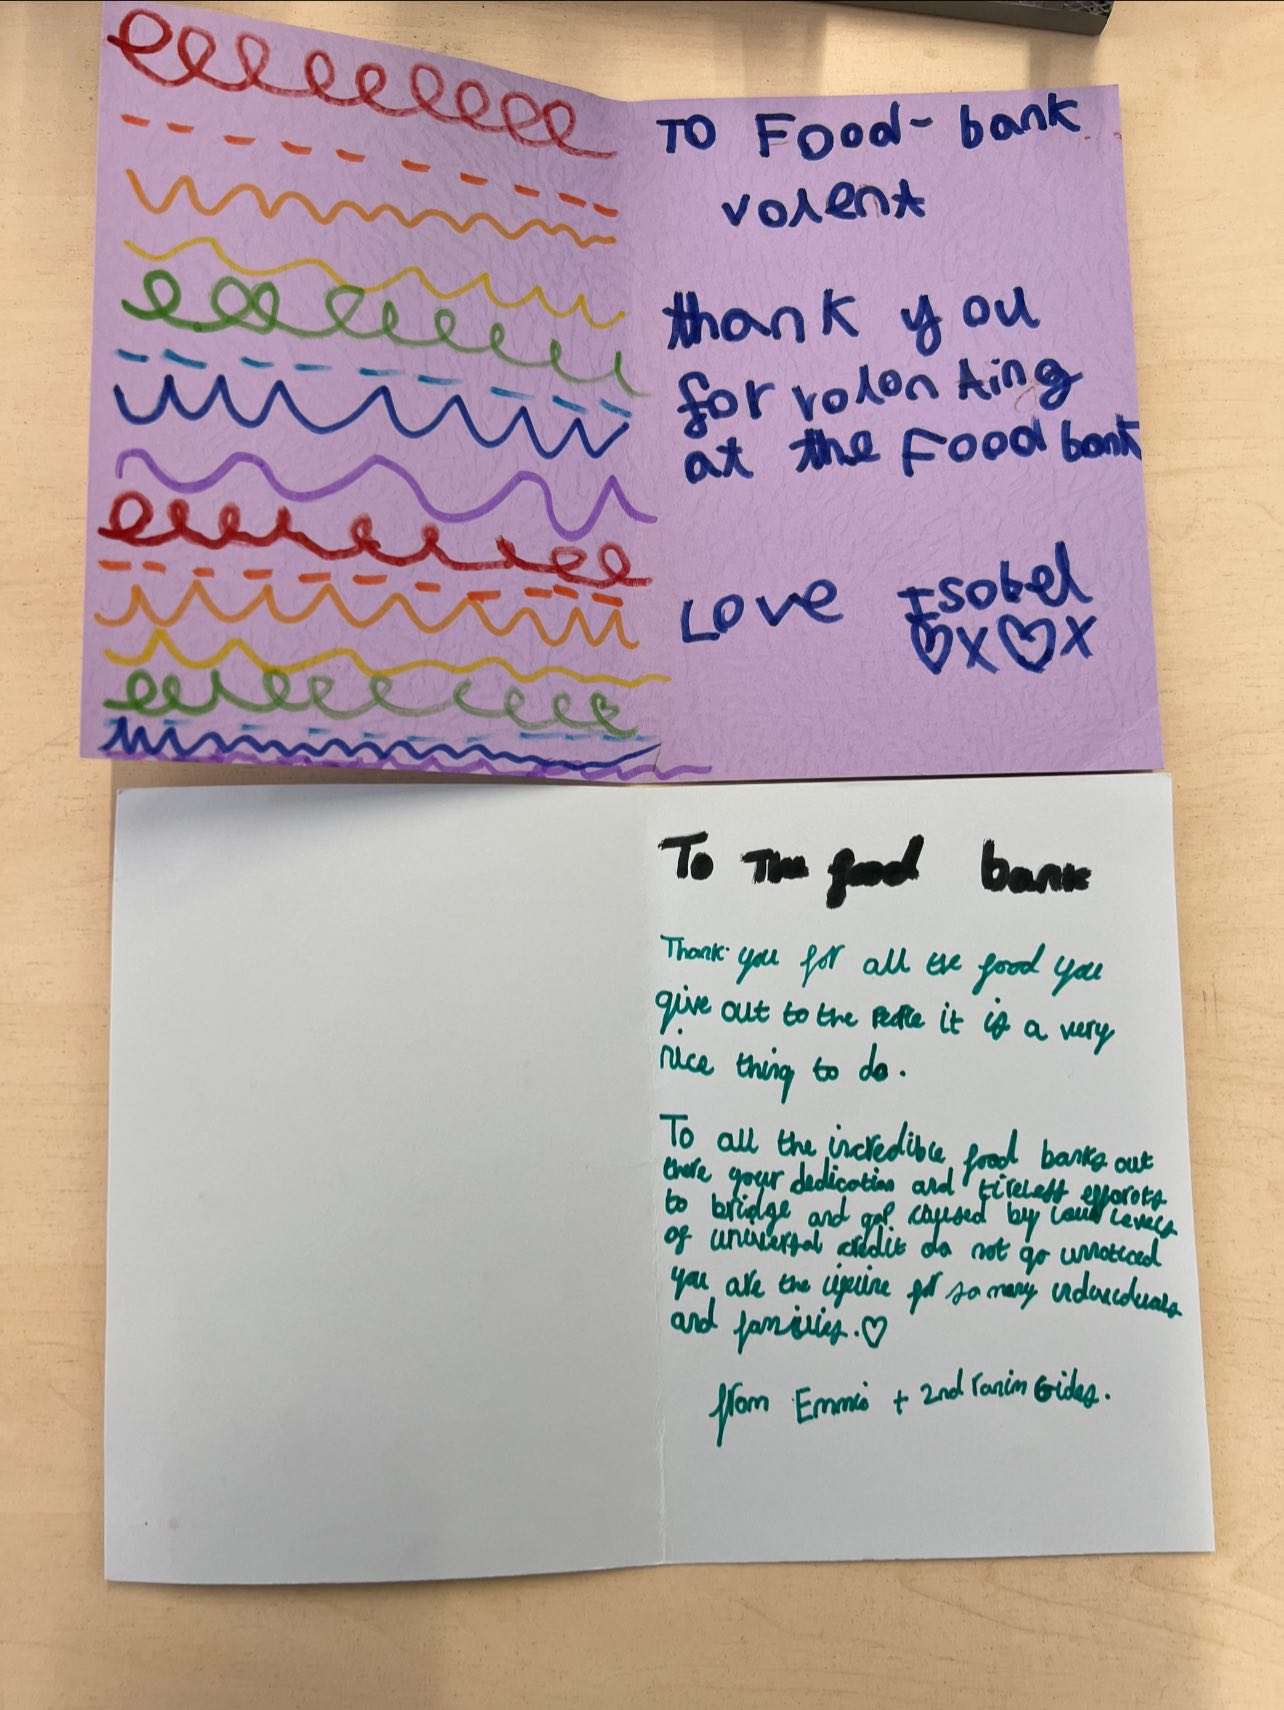 TO Food-bank
volent
thank you
for volonting
at the Food bank
Love Isobel
♡X♡X
To The food bank
Thank you for all the food you
give out to the people it is a very
nice thing to do.
To all the incredible food banks out
there your dedication and tireless efforts
to bridge and gap caused by low levels
of universal credit do not go unnoticed
you are the for so many individuals
and families.♡
from + 2nd